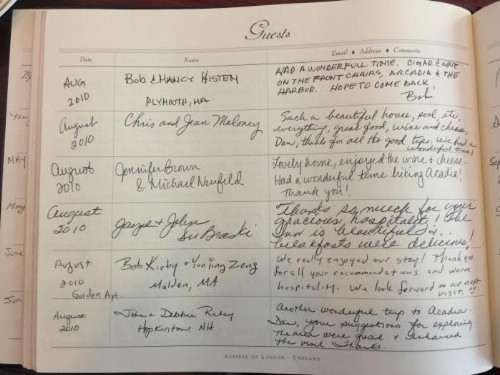 Guests
Date Name Email ♦ Address ♦ Comments
AUG
2010
Bob & Nancy Histen
PLYMOUTH, MA
HAD A WONDERFUL TIME.
ON THE FRONT CHAIRS, ARCADIA & THE
HARBOR. HOPE TO COME BACK.
Bob
August
2010
Chris and Jean Maloney
Such a beautiful house, pool, etc.
everything, great food, wine and cheese,
Dan, thanks for all the good tips. We had a
wonderful time!
August
2010
Jennifer Brown
& Michael Neufeld
Lovely home, enjoyed the wine & cheese.
Had a wonderful time hiking Acadia!
Thank you!
August
2010
Thanks so much for your
gracious hospitality! The
Inn is beautiful
breakfasts were delicious!
August
2010
Garden Apt
Bob Kirby & Yunying Zeng
Malden, MA
We really enjoyed our stay! Thank you
for all your recommendations and warm
hospitality. We look forward to our next
visit.
August
2010
John & Debbie Raley
Hopkinton NH
Another wonderful trip to Acadia.
Dan, your suggestions for exploring
the area were great & enhanced
the visit. Thanks.
ASPINAL OF LONDON - ENGLAND